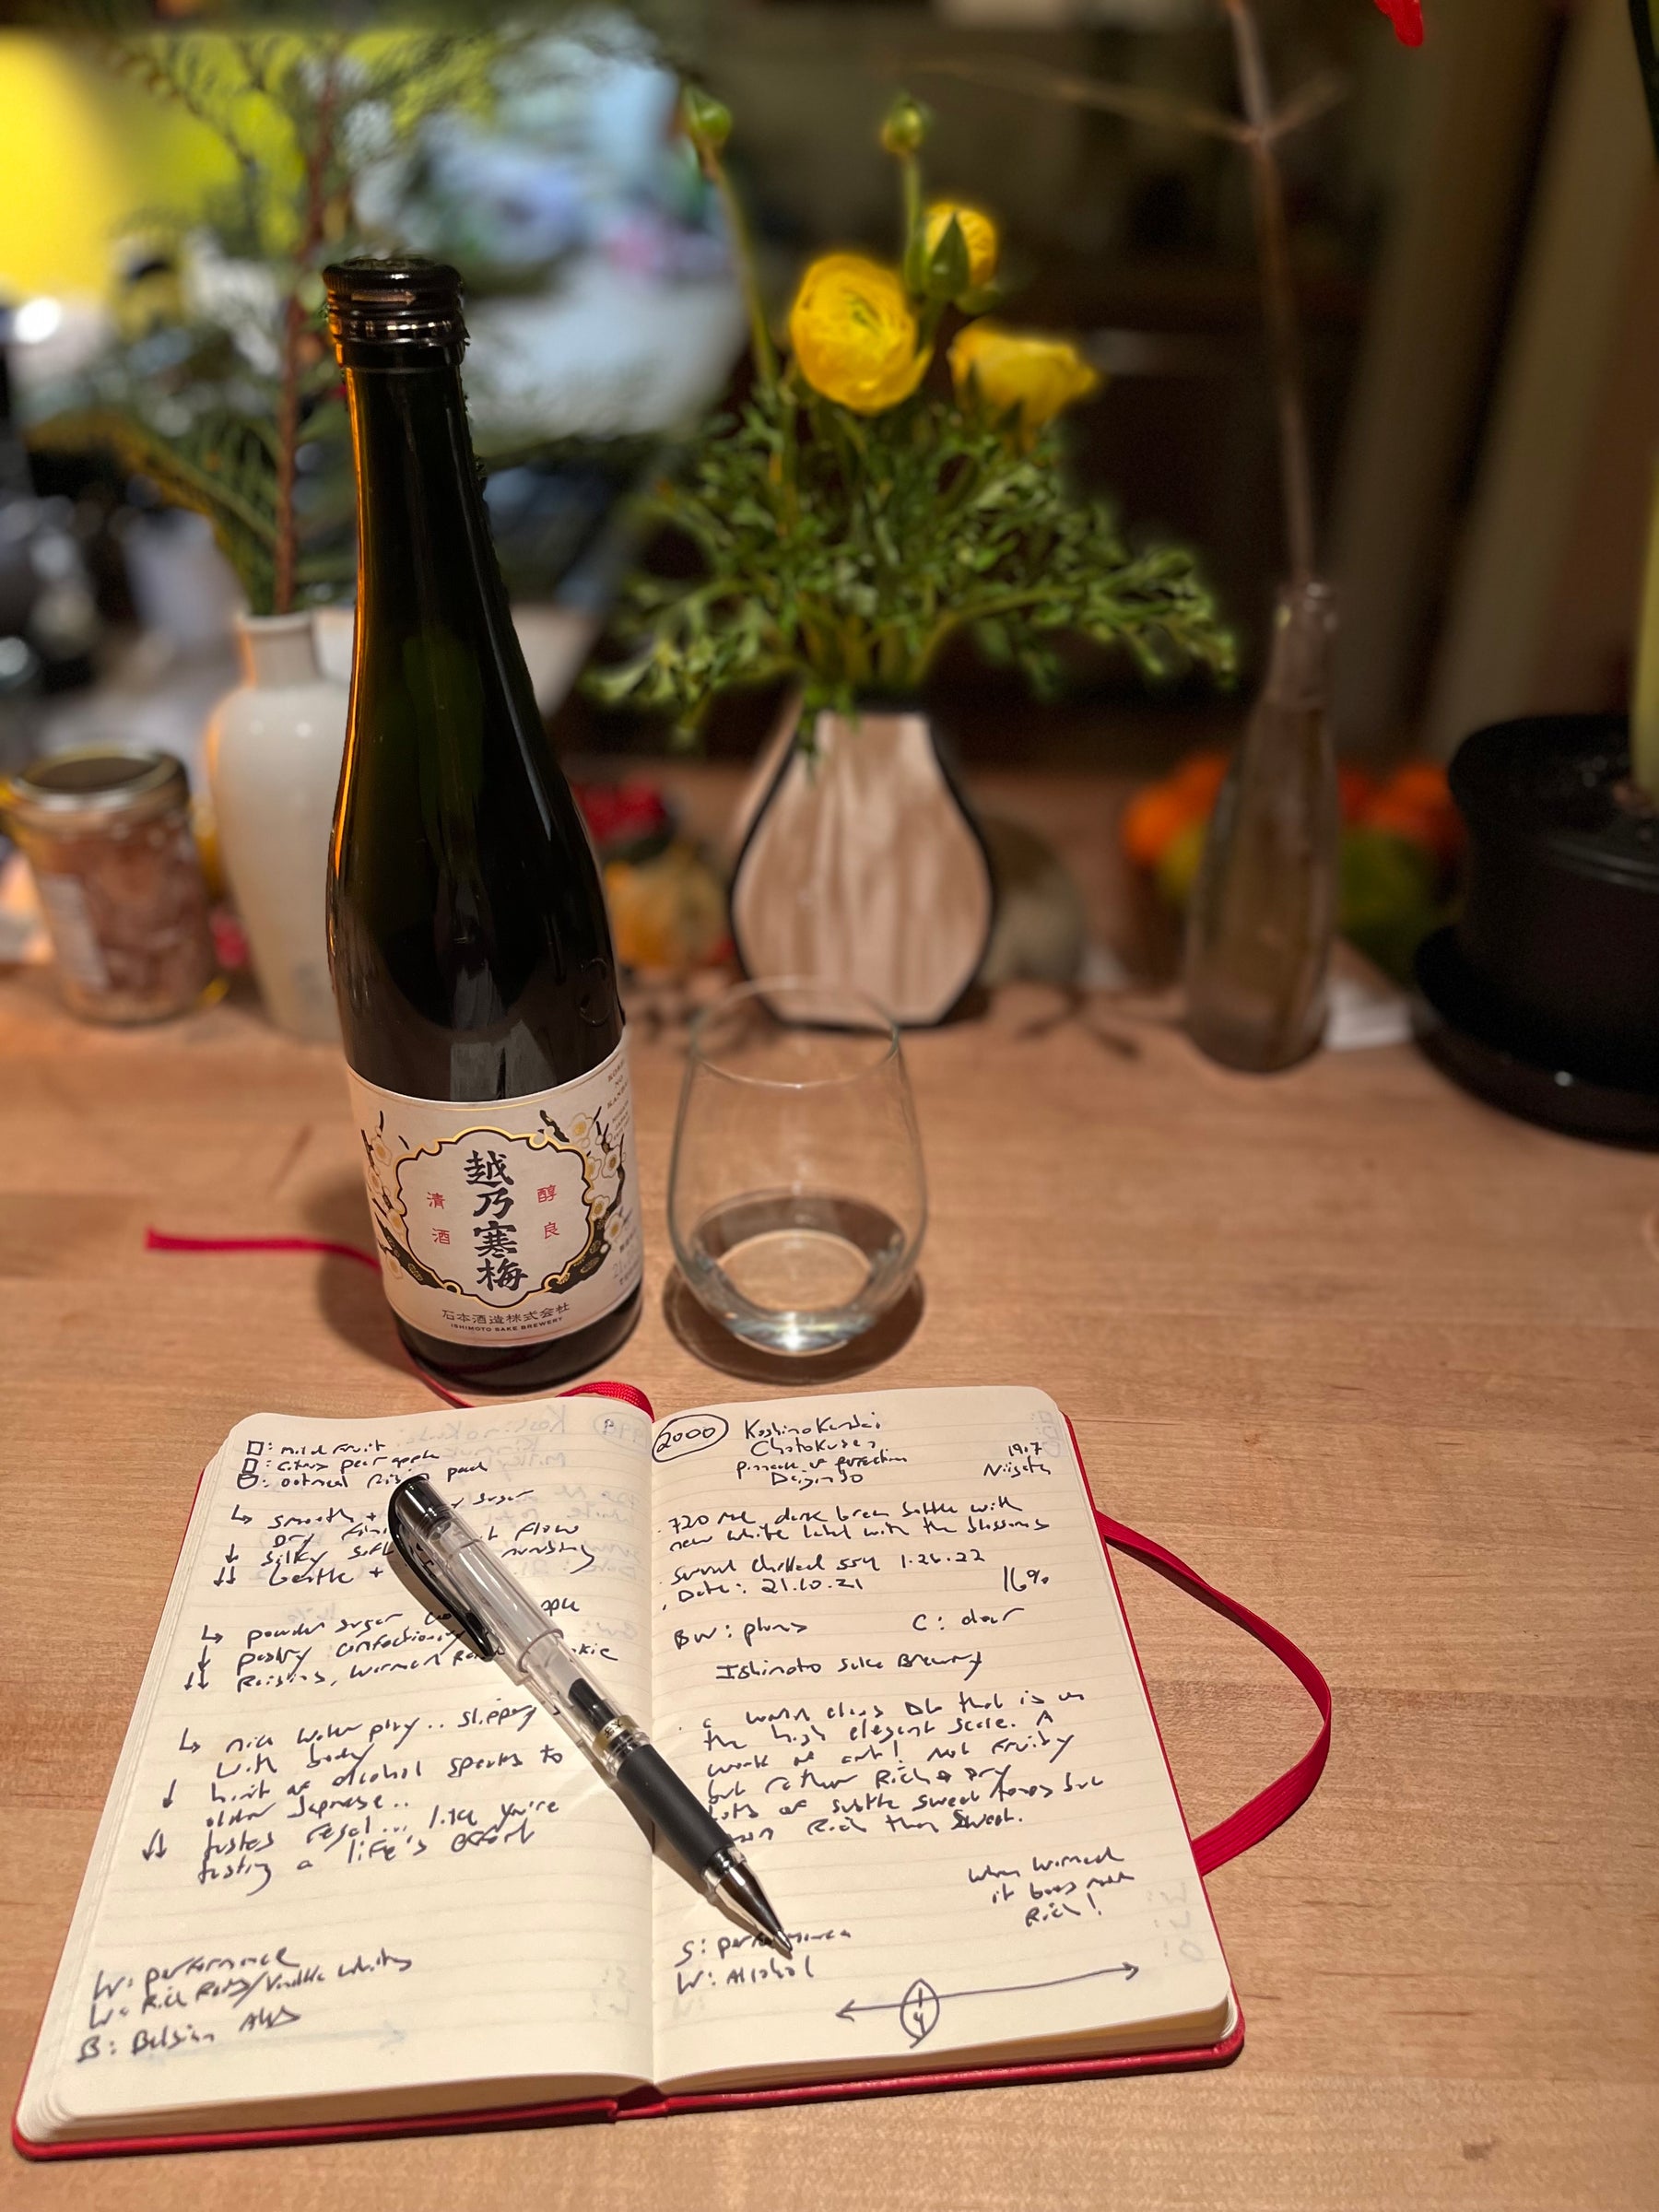 越乃寒梅
清酒
醇良
石本酒造株式会社
ISHIMOTO SAKE BREWERY
KOSHI
NO
KANBAI
□: mild fruit
□: citrus pear apple
: oatmeal
↳ smooth +
Dry
↓ silky soft
↓↓ Gentle +
↳ powder sugar
↓ pastry confectionary
↓↓ Raisins, warmed
↳ nice water play.. slippery
with body
↓ hint of alcohol speaks to
older Japanese..
↓↓ tastes regal... like you're
tasting a life's effort
W: performance
W: Rich Reds/
B: Belgian Ales
2000
Koshi no Kanbai
Chotokusen
pinnacle of perfection
Daiginjo
1907
Niigata
. 720 ML dark green bottle with
new white label with the blossoms
. Served chilled 55y 1.26.22
. Date: 21.10.21
16%
BW: plums
C: clear
Ishimoto Sake Brewery
. a world class DG that is on
the high elegant scale. A
work of art! Not fruity
but rather Rich & Dry
lots of subtle sweet tones but
more Rich than Sweet.
when warmed
it goes more
Rich!
S: performance
W: Alcohol